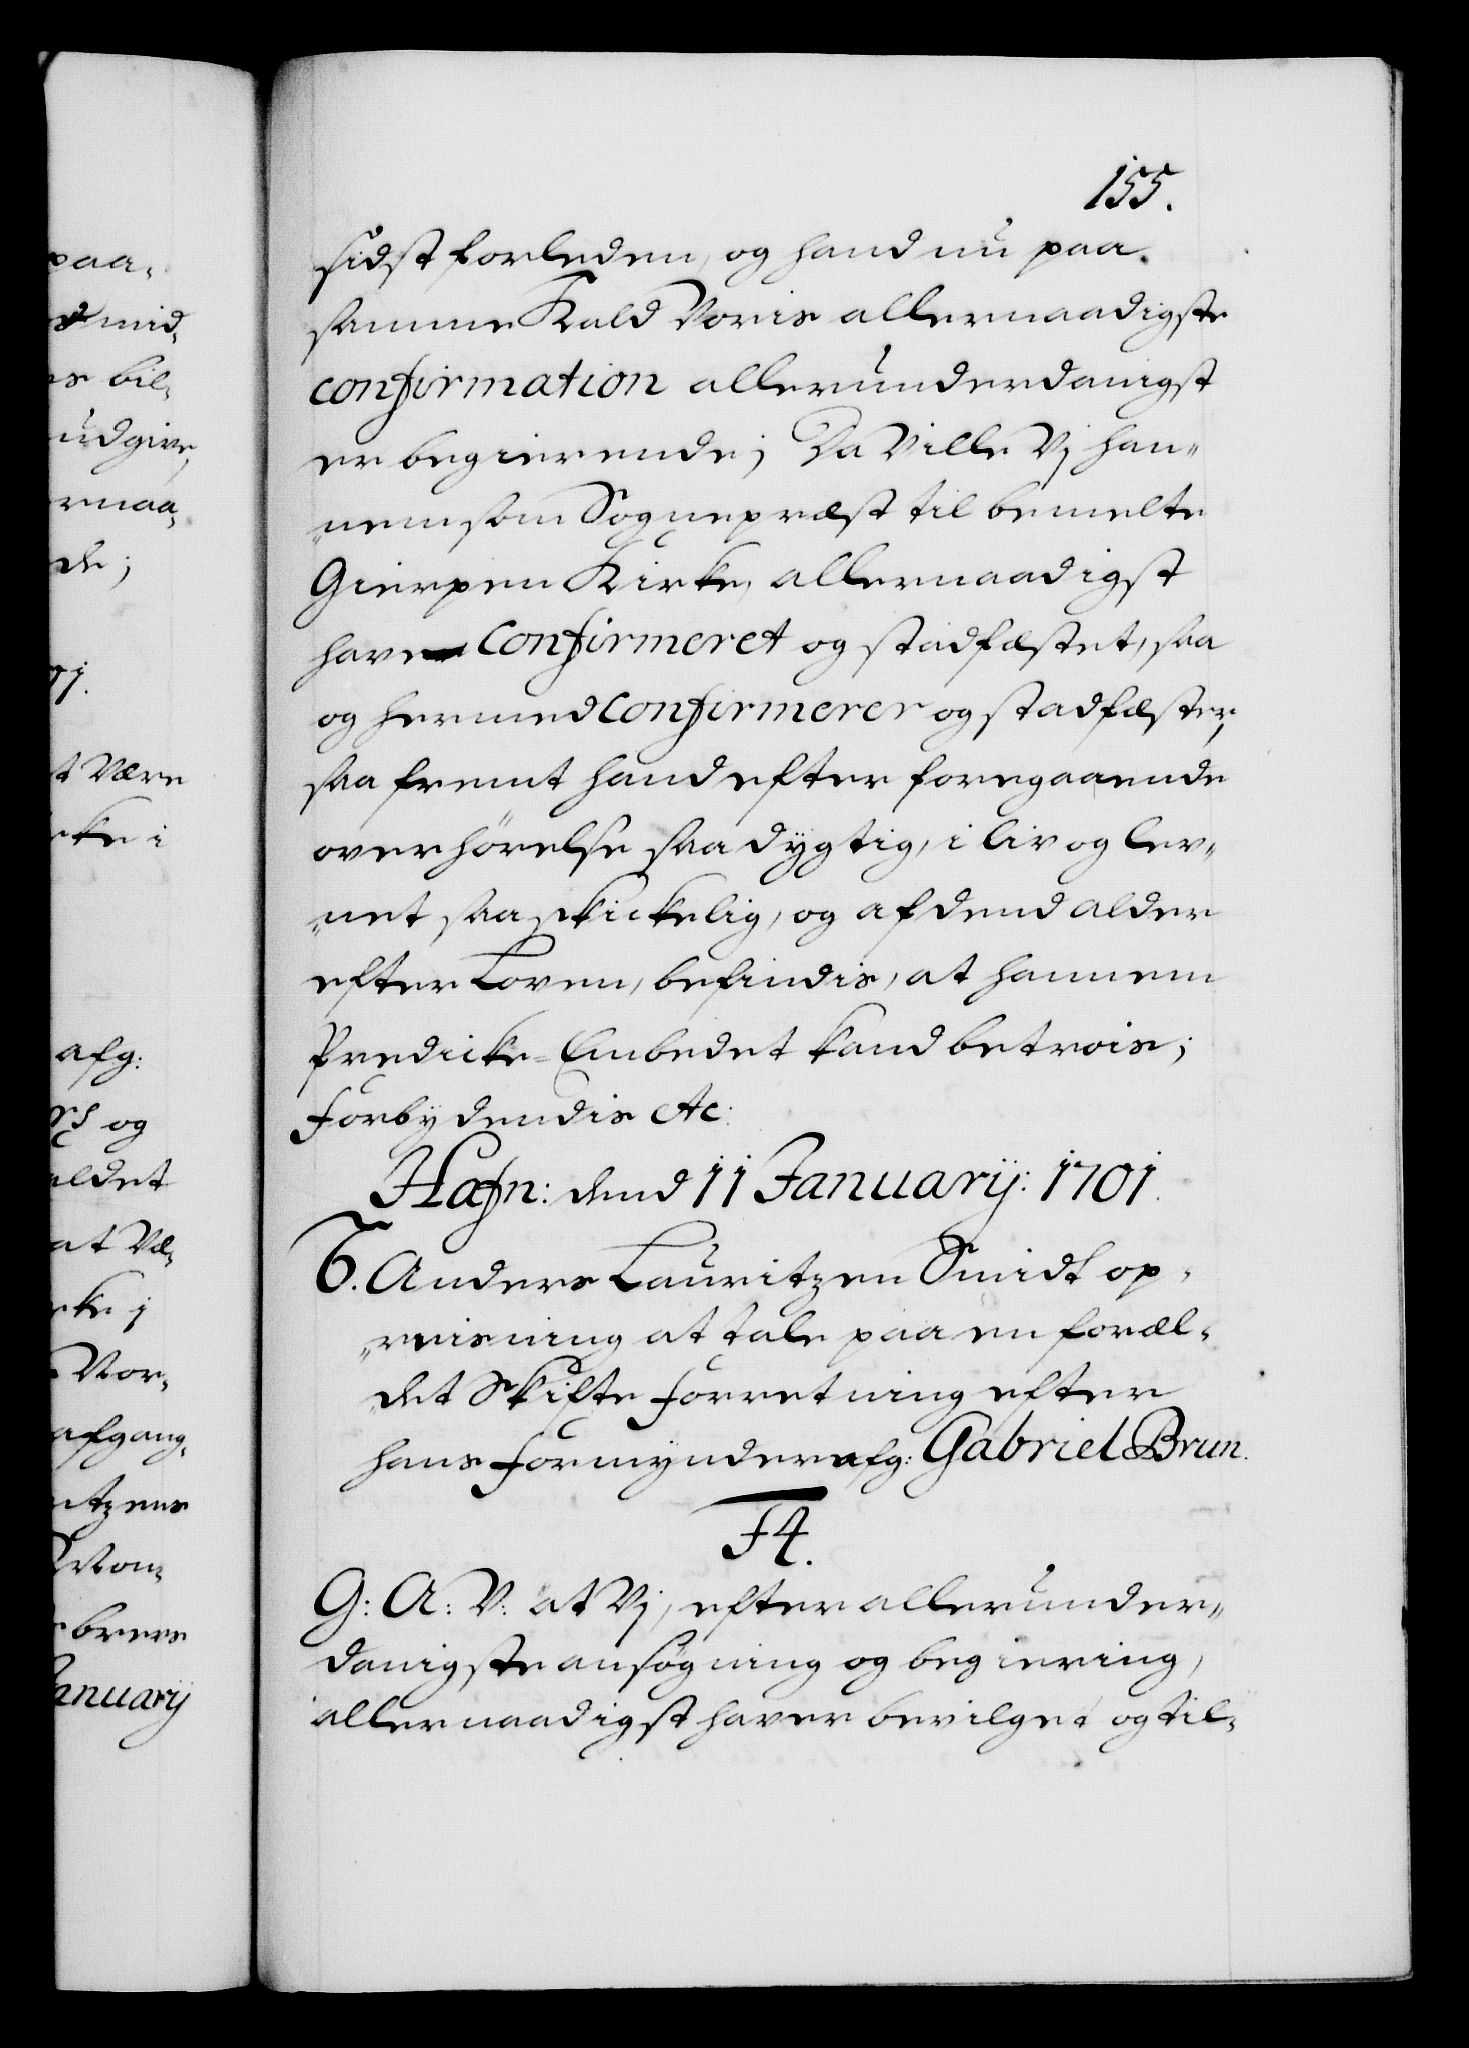 155.
sidst forleden, og hand nu paa
samme Kald Voris allernaadigste
confirmation allerunderdanigst
er begierende; Da Ville Vj han¬
nem som Sognepræst til bemelte
Gierpen Kirke, allernaadigst
have confirmeret og stadfæstet, saa
og hermed confirmerer og stadfæster,
saa fremt hand efter foregaaende
overhörelse saa dygtig, i liv og lev¬
net saa skickelig, og af dend alder
efter Loven, befindis, at hannem
Predicke-Embedet kand betrois;
Forbydendis etc:
Hafn: dend 11 Januarij: 1701.
6. Anders Lauritzen Smidt op¬
reisning at tale paa en foræl¬
det Skifte Forretning efter
hans Formynder afg: Gabriel Brun.
F4.
G: A: V: at Vj, efter allerunder¬
danigste ansøgning og begiering,
allernaadigst haver bevilget og til¬
paa¬
mid¬
bil¬
udgive,
de;
Være
i
afg:
og
at Væ¬
j
Vor¬
afgang¬
Januarij